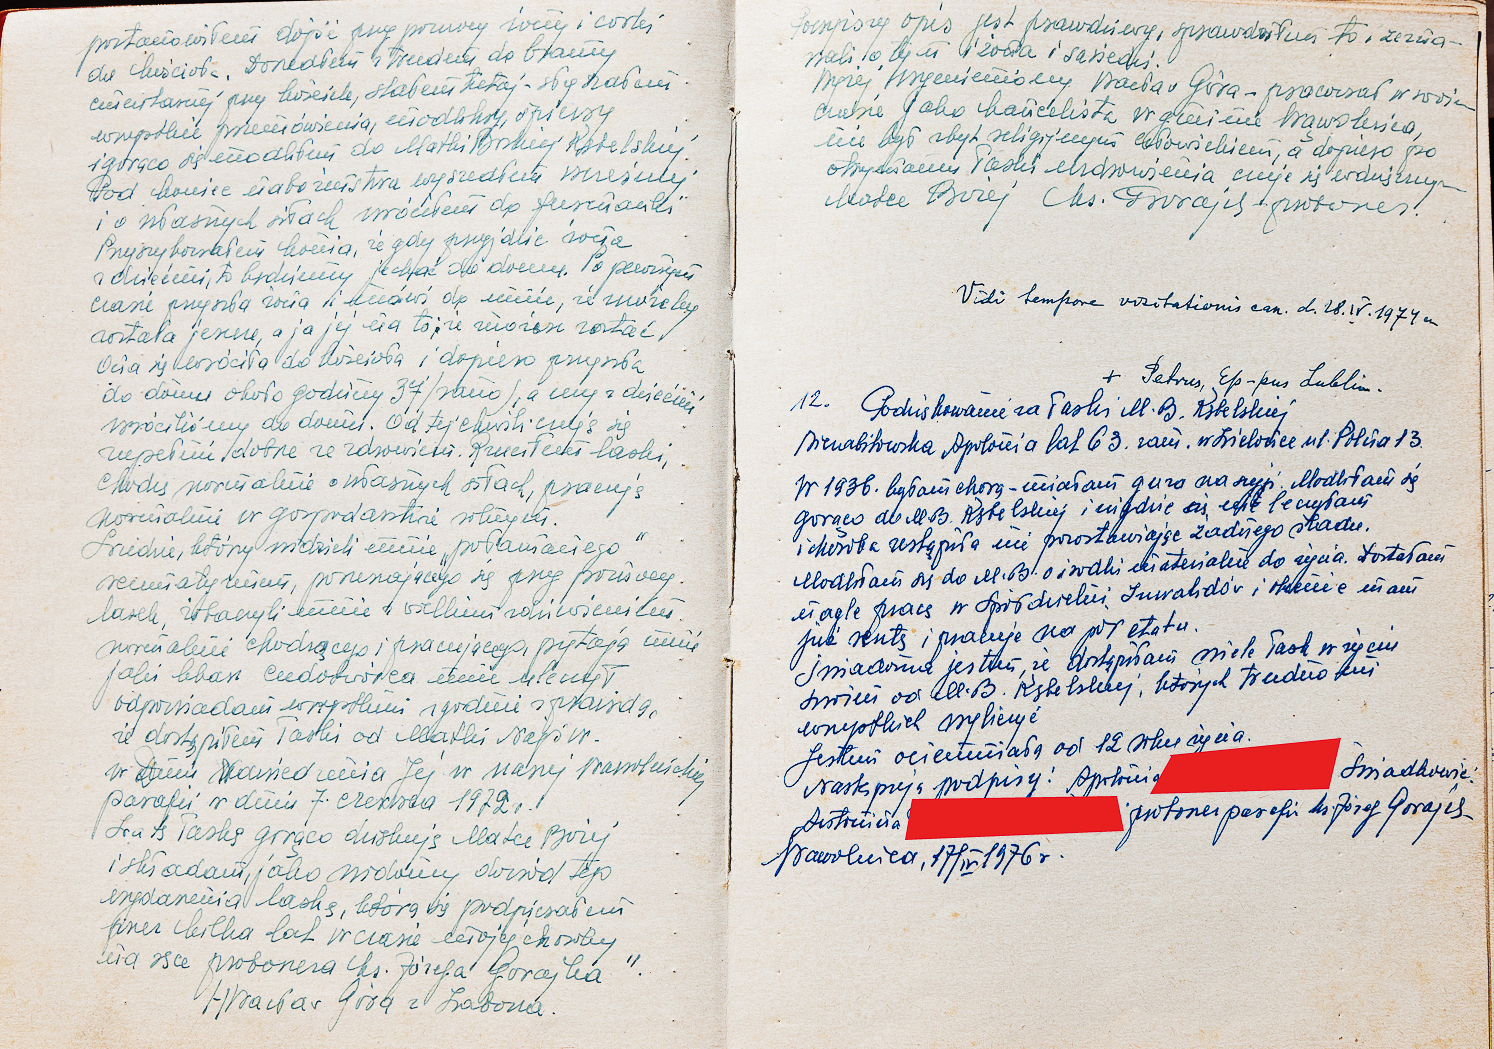 postanowiłem dojść przy pomocy żony i córki
do kościoła. Doszedłem z trudem do bramy
cmentarnej przy kościele, stałem tutaj - słyszałem
wszystkie przemówienia, modlitwy, śpiewy
i gorąco się modliłem do Matki Boskiej Kębelskiej.
Pod koniec nabożeństwa wyszedłem wcześniej
i o własnych siłach wróciłem do furmanki
Przyszykowałem konia, że gdy przyjdzie żona
z dziećmi, to będziemy jechać do domu. Po pewnym
czasie przyszła żona i mówi do mnie, że może by
została jeszcze, a ja jej na to, że możesz zostać
Ona się wróciła do kościoła i dopiero przyszła
do domu około godziny 3 /rano/, a my z dziećmi
wróciliśmy do domu. Od tej chwili czuję się
zupełnie dobrze ze zdrowiem. Rzuciłem laski,
chodzę normalnie o własnych siłach, pracuję
normalnie w gospodarstwie rolnym.
Ludzie, którzy widzieli mnie „połamanego"
reumatyzmem, poruszającego się przy pomocy
lasek, zobaczyli mnie z wielkim zdziwieniem
normalnie chodzącego i pracującego, pytają mnie
jaki lekarz cudotwórca mnie uleczył
odpowiadam wszystkim zgodnie z prawdą,
że dostąpiłem łaski od Matki Najśw.
w dniu Nawiedzenia Jej w naszej Wąwolnickiej
parafii w dniu 7. czerwca 1972 r.
Za tę łaskę gorąco dziękuję Matce Bożej
i składam, jako widomy dowód tego
wydarzenia laskę, którą się podpierałem
przez kilka lat w czasie mojej choroby
na ręce proboszcza ks. Józefa Gorajka".
/-/ Wacław Góra z Zabłona.
Powyższy opis jest prawdziwy, sprawdziłem to i zezna-
wali o tym i żona i sąsiedzi.
Wyżej wymieniony Wacław Góra - pracował w swoim
czasie jako kancelista w gminie Wąwolnica,
nie był zbyt religijnym człowiekiem, a dopiero po
otrzymaniu łaski uzdrowienia czuje się wdzięcznym
Matce Bożej ks. Gorajek - proboszcz.
Vidi tempore visitationis can. d. 28.IV.1974 r
+ Petrus, Ep-pus Lublin.
12. Podziękowanie za łaski M.B. Kębelskiej
Apolonia lat 63. zam. w ul. Polna 13.
W 1936. byłam chora - miałam guza na szyji. Modliłam się
gorąco do M.B. Kębelskiej i nigdzie się nie leczyłam
i choroba ustąpiła nie pozostawiając żadnego śladu.
Modliłam się do M.B. o środki materialne do życia. Dostałam
nagle pracę w Spółdzielni Inwalidów i obecnie mam
już rentę i pracuję na pół etatu.
Świadoma jestem, że dostąpiłam wiele łask w życiu
swoim od M.B. Kębelskiej, których trudno mi
wszystkich wyliczyć
Jestem ociemniała od 12 roku życia.
Następują podpisy: Apolonia Świadkowie:
Antonina i proboszcz parafii ks Józef Gorajek
Wąwolnica, 17/IV 1976 r.